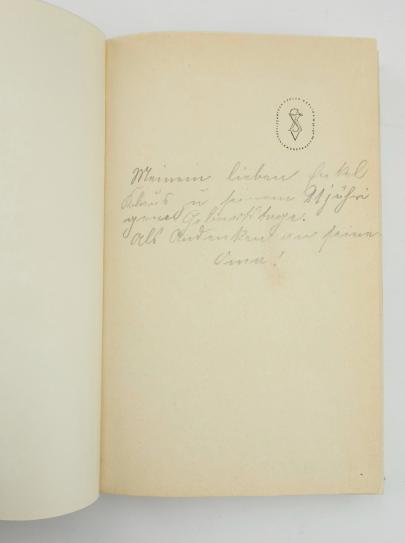 Meinem lieben Enkel
Klaus zu seinem 21jähri
gene Geburtstage.
Als Andenken an seine
Oma!